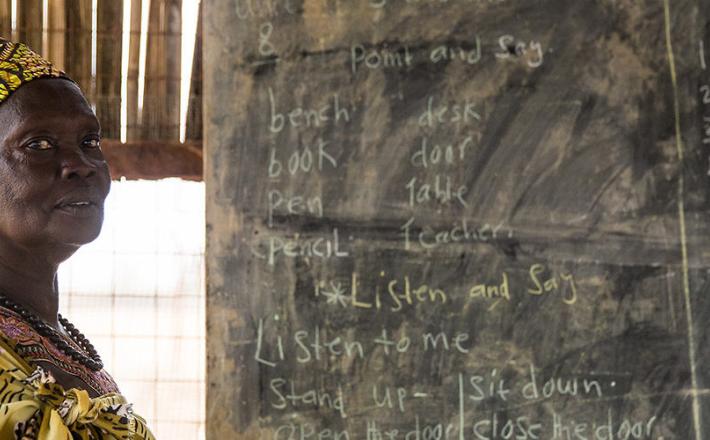 8 Point and Say.
bench desk
book door
pen Table
pencil Teacher.
*Listen and Say
Listen to me
Stand up- | Sit down.
Open the door | close the door